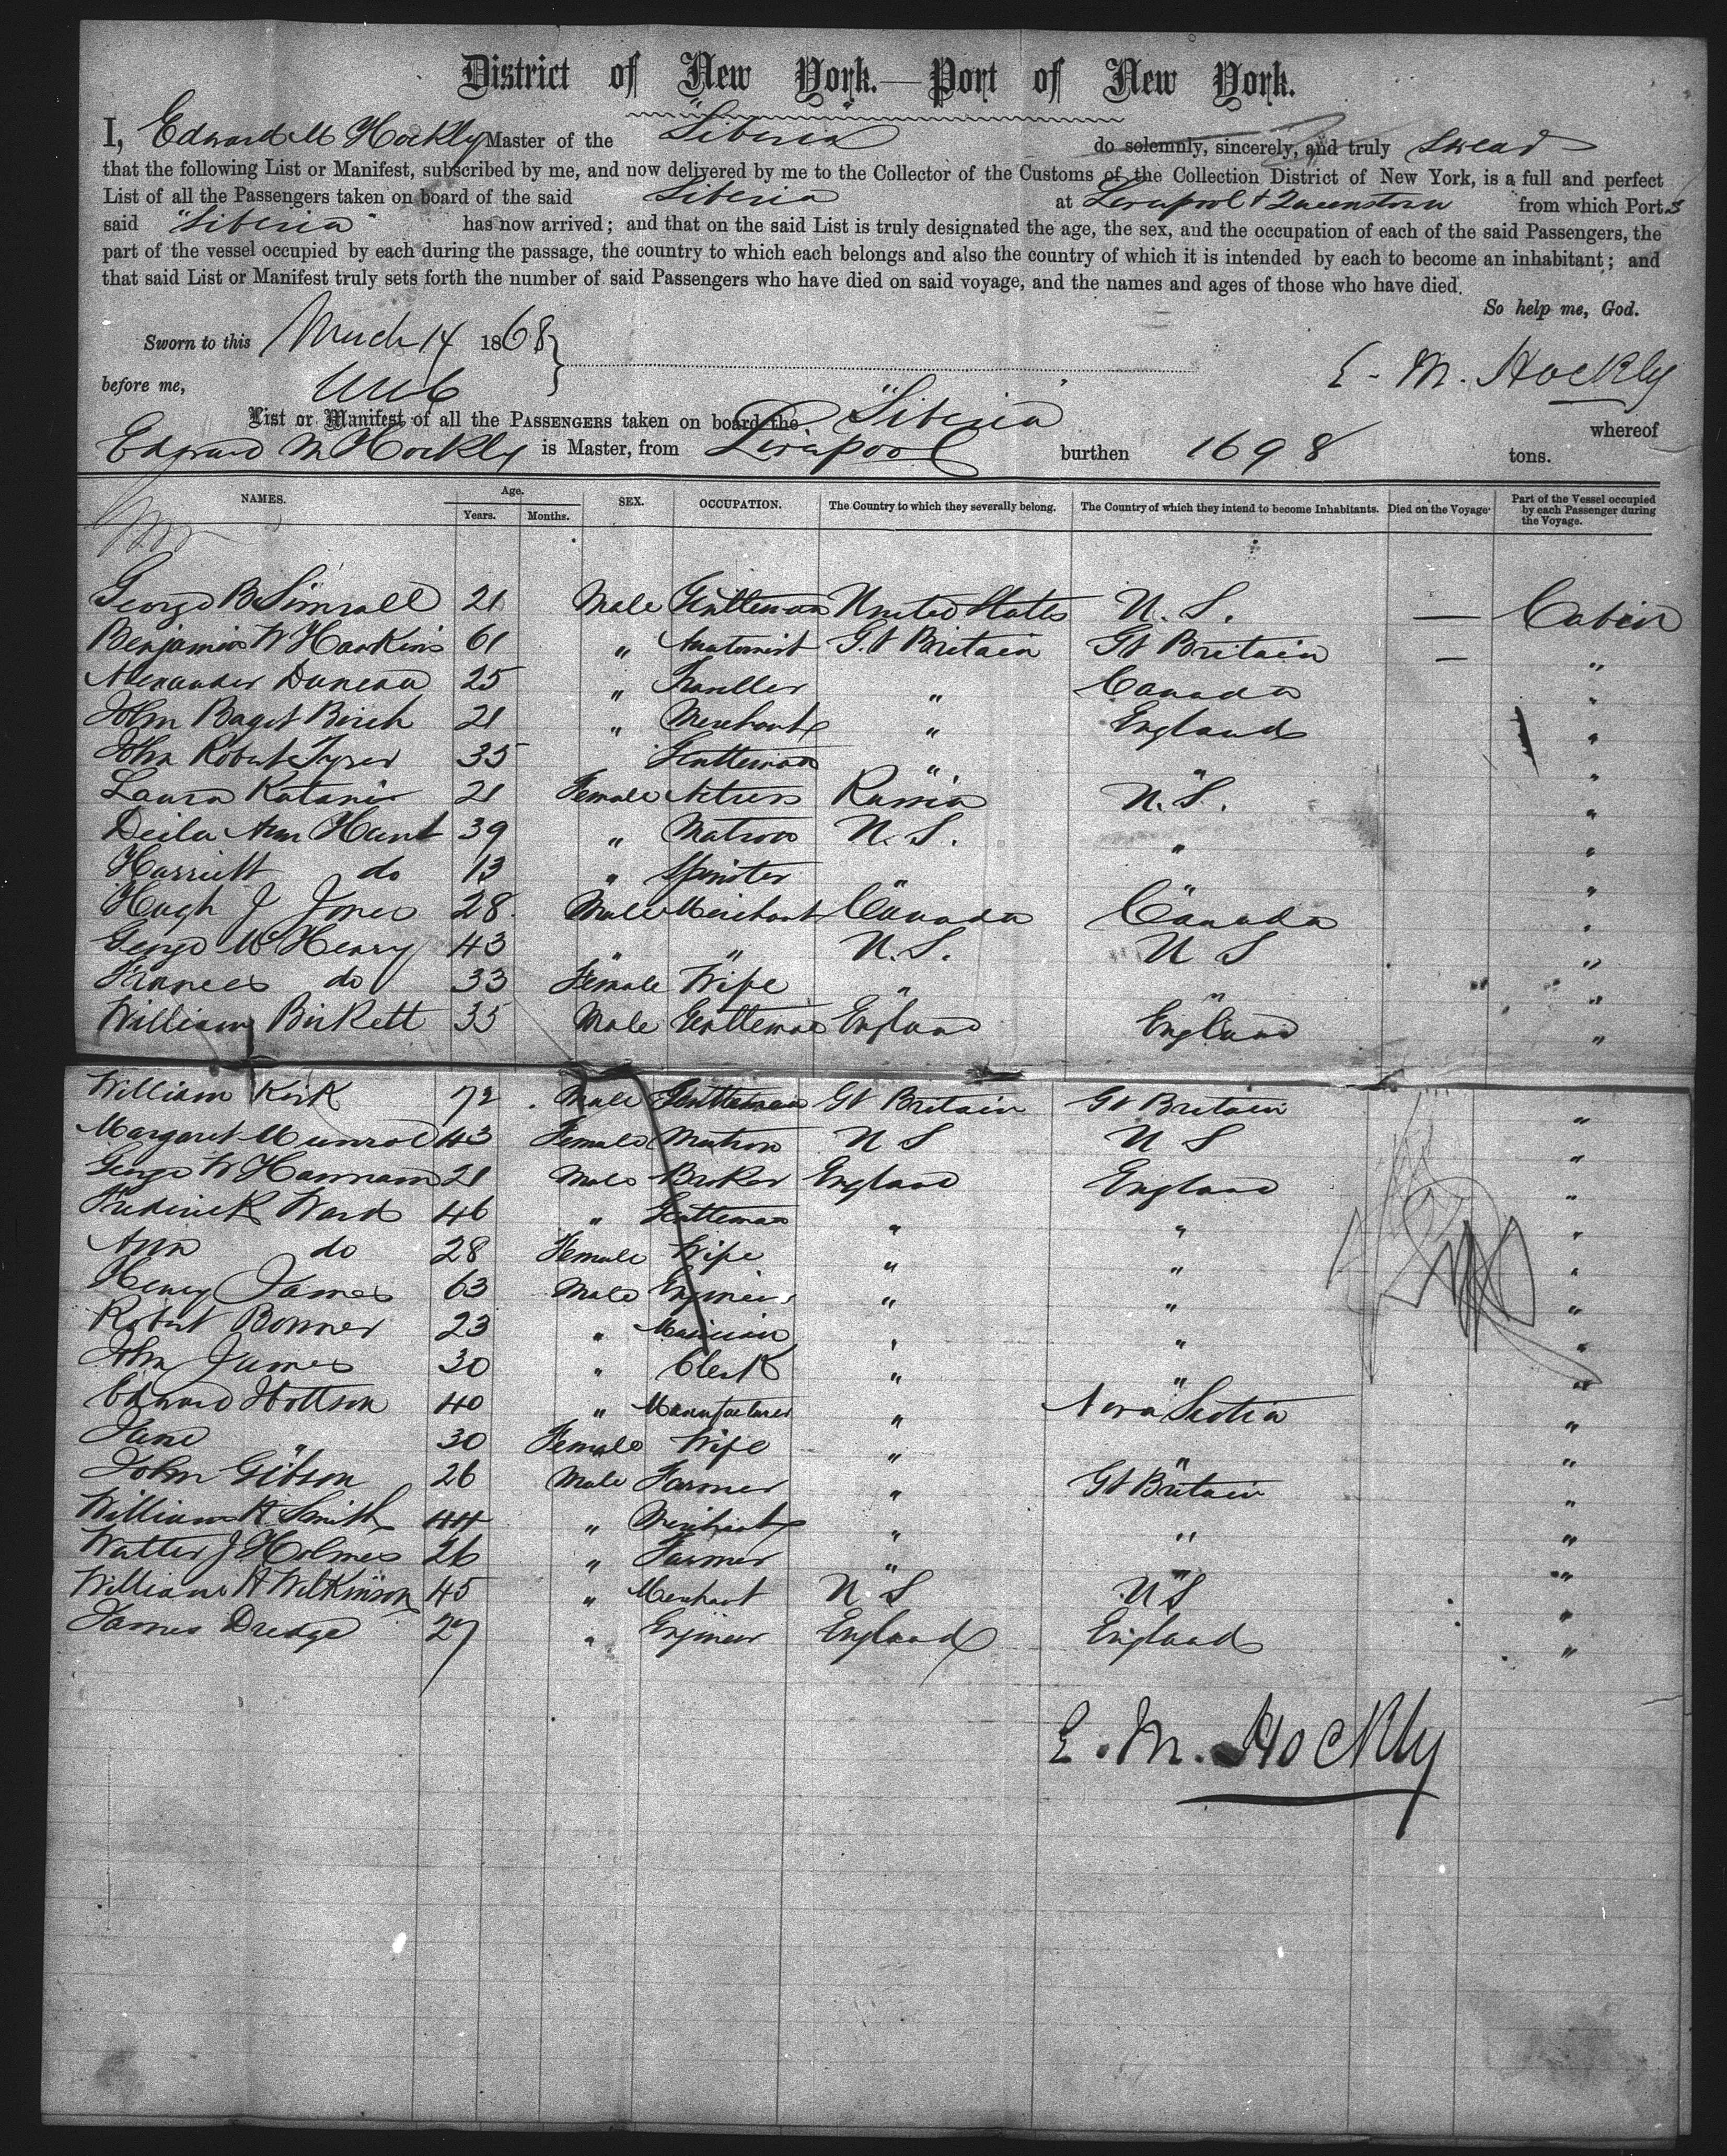 District of New York.—Port of New York.
I, Edward M Hockly Master of the "Siberia" do solemnly, sincerely, and truly swear
that the following List or Manifest, subscribed by me, and now delivered by me to the Collector of the Customs of the Collection District of New York, is a full and perfect
List of all the Passengers taken on board of the said Siberia at Liverpool & Queenstown from which Ports
said "Siberia" has now arrived; and that on the said List is truly designated the age, the sex, and the occupation of each of the said Passengers, the
part of the vessel occupied by each during the passage, the country to which each belongs and also the country of which it is intended by each to become an inhabitant; and
that said List or Manifest truly sets forth the number of said Passengers who have died on said voyage, and the names and ages of those who have died.
So help me, God.
Sworn to this March 14 1868
E. M. Hockly
before me,
List or Manifest of all the PASSENGERS taken on board the "Siberia" whereof
Edward M Hockly is Master, from Liverpool burthen 1698 tons.
NAMES. Age. Years. Months. SEX. OCCUPATION. The Country to which they severally belong. The Country of which they intend to become Inhabitants. Died on the Voyage. Part of the Vessel occupied by each Passenger during the Voyage.
George B Simrall 21 Male Gentleman United States U. S. — Cabin
Benjamin W Hawkins 61 " Anatomist Gt Britain Gt Britain — "
Alexander Duncan 25 " Traveller " Canada "
John Bagot Birch 21 " Merchant " England "
John Robert Tyrer 35 Gentleman " " "
Laura 21 Female Actress Russia U. S. "
Ann Hunt 39 " Matron U. S. " "
Harriett do 13 " Spinster " " "
Hugh J Jones 28 Male Merchant Canada Canada "
George McHenry 43 " " U. S. U S "
Frances do 33 Female Wife " " "
William Birkett 35 Male Gentleman England England "
William Kirk 72 Male Gentleman Gt Britain Gt Britain "
Margaret Munroe 43 Female Matron U S U S "
George W Hannam 21 Male Broker England England "
Frederick Ward 46 " Gentleman " " "
Ann do 28 Female Wife " " "
Henry James 63 Male Engineer " " "
Robert Bonner 23 " Musician " " "
John James 30 " Clerk " " "
Edward Hottson 40 " Manufacturer " Nova Scotia "
Jane " 30 Female Wife " " "
John Gibson 26 Male Farmer " Gt Britain "
William H Smith 44 " Merchant " " "
Walter J Holmes 26 " Farmer " " "
William H Wilkinson 45 " Merchant U S U S "
James Dredge 27 " Engineer England England "
E. M. Hockly